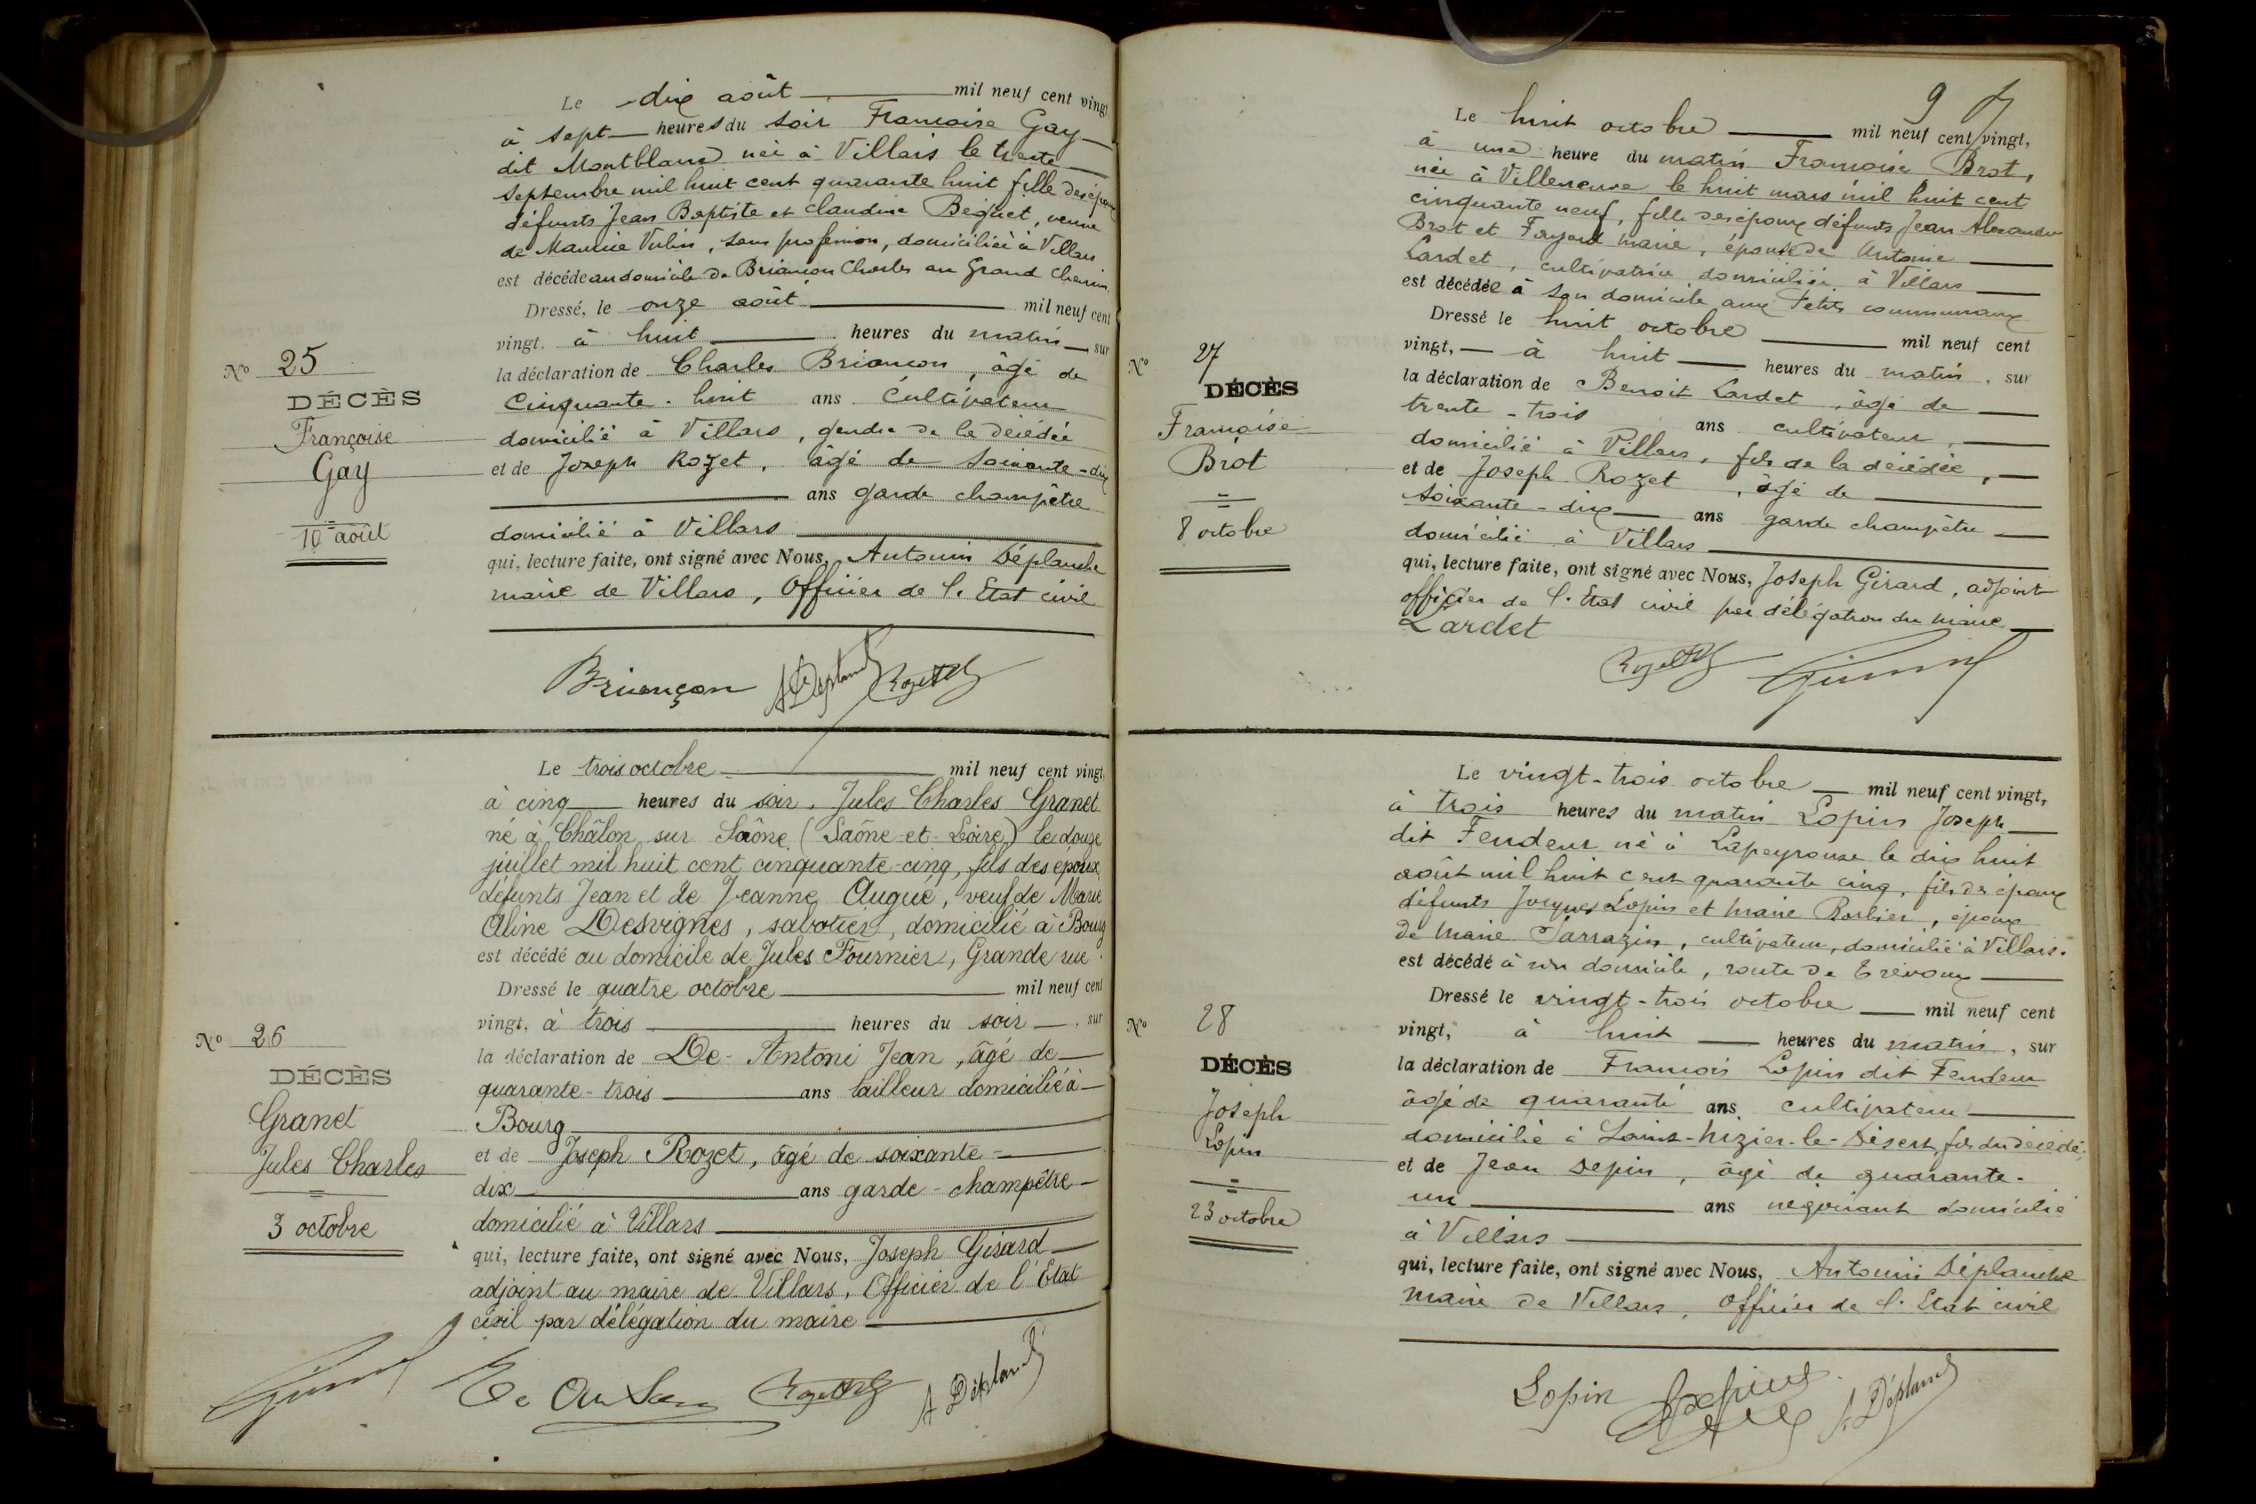 Le dix août mil neuf cent vingt
à sept heures du soir Francoise Gay
dit Montblanc née à Villars le trente
septembre mil huit cent quarante huit fille des époux
défunts Jean Baptiste et Claudine Béguet, veuve
de Maurice Vulin, sans profession, domiciliée à Villars
est décédé au domicile de Briancon Charles au Grand Chemin.
Dressé, le onze août mil neuf cent
vingt. à huit heures du matin sur
la déclaration de Charles Briancon, âgé de
Cinquante-huit ans Cultivateur
domicilié à Villars, gendre de la décédée
et de Joseph Rozet, âgé de soixante-dix
ans garde champêtre
domicilié à Villars
qui, lecture faite, ont signé avec Nous, Antonin Déplanche
maire de Villars, Officier de l'Etat civil
Briançon A Déplanche Rozet
No 25
DÉCÈS
Françoise
Gay
10 août
Le trois octobre mil neuf cent vingt,
à cinq heures du soir, Jules Charles Granet
né à Châlon sur Saône (Saône-et-Loire) le douze
juillet mil huit cent cinquante-cinq, fils des époux
défunts Jean et de Jeanne Augué, veuf de Marie
Aline Desvignes, sabotier, domicilié à Bourg
est décédé au domicile de Jules Fournier, Grande rue.
Dressé le quatre octobre mil neuf cent
vingt, à trois heures du soir, sur
la déclaration de De Antoni Jean, âgé de
quarante-trois ans tailleur domicilié à
Bourg
et de Joseph Rozet, âgé de soixante-
dix ans garde-champêtre
domicilié à Villars
qui, lecture faite, ont signé avec Nous, Joseph Girard
adjoint au maire de Villars, Officier de l'Etat
civil par délégation du maire
Girard De Antoni Rozet A Déplanche
No 26
DÉCÈS
Granet
Jules Charles
3 octobre
9
Le huit octobre mil neuf cent vingt,
à une heure du matin Francoise Brot,
née à Villeneuve le huit mars mil huit cent
cinquante neuf, fille des époux défunts Jean Alexandre
Brot et Fayard Marie, épouse de Antoine
Lardet, cultivatrice domiciliée à Villars
est décédée à son domicile aux Petits communaux
Dressé le huit octobre mil neuf cent
vingt, à huit heures du matin, sur
la déclaration de Benoit Lardet, âgé de
trente-trois ans cultivateur,
domicilié à Villars, fils de la décédée,
et de Joseph Rozet, âgé de
soixante-dix ans garde champêtre
domicilié à Villars
qui, lecture faite, ont signé avec Nous, Joseph Girard, adjoint
officier de l'Etat civil par délégation du maire
Lardet Rozet Girard
No 27
DÉCÈS
Francoise
Brot
8 octobre
Le vingt-trois octobre mil neuf cent vingt,
à trois heures du matin Lopin Joseph
dit Fendeur né à Lapeyrouse le dix huit
août mil huit cent quarante cinq, fils des époux
défunts Jacques Lopin et Marie Barbier, époux
de Marie Sarrazin, cultivateur, domicilié à Villars.
est décédé à son domicile, route de Trévoux
Dressé le vingt-trois octobre mil neuf cent
vingt, à huit heures du matin, sur
la déclaration de Francois Lopin dit Fendeur
âgé de quarante ans, cultivateur
domicilié à Saint-Nizier-le-Désert, fils du décédé,
et de Jean Depin, âgé de quarante-
un ans négociant domicilié
à Villars
qui, lecture faite, ont signé avec Nous, Antonin Déplanche
maire de Villars, Officier de l'Etat civil
Lopin Depin A Déplanche
No 28
DÉCÈS
Joseph
Lopin
23 octobre